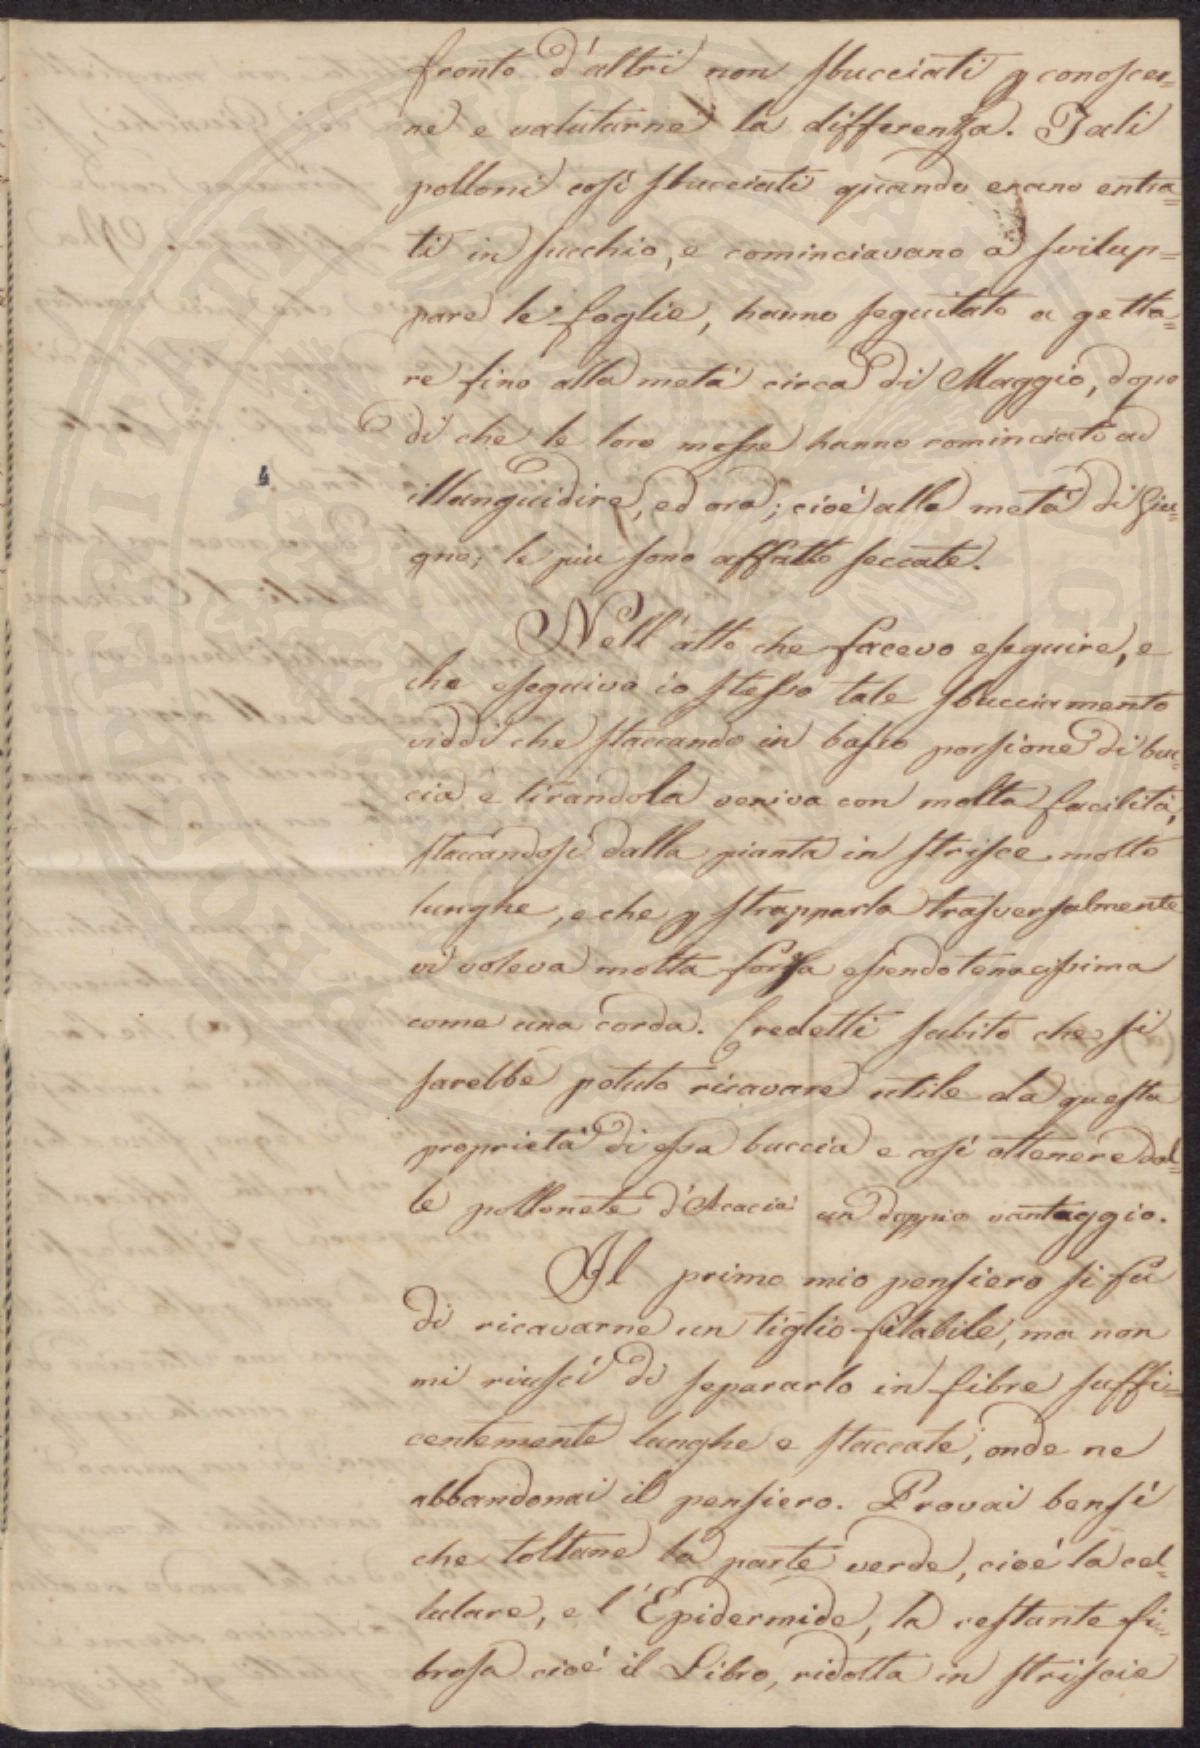 fronto d'altri non sbucciati p conoscer=
ne e valutarne la differenza. Tali
polloni così sbucciati quando erano entra=
ti in succhio, e cominciavano a svilup=
pare le foglie, hanno seguitato a getta=
re fino alla metà circa di Maggio, dopo
di che le loro messe hanno cominciato ad
illanguidire, ed ora; cioè alla metà di Giu=
gno; le più sono affatto seccate.
Nell'atto che facevo eseguire, e
che eseguivo io stesso tale sbucciamento
viddi che staccando in basso porsione di buc=
cia e tirandola veniva con molta facilità,
staccandosi dalla pianta in strisce molto
lunghe, e che p strapparla trasversalmente
vi voleva molta forza essendo tenacissima
come una corda. Credetti subito che si
sarebbe potuto ricavare utile da questa
proprietà di essa buccia e così ottenere dal=
le pollonete d'Acacia un doppio vantaggio.
Il primo mio pensiero si fù
di ricavarne un tiglio filabile, ma non
mi riuscì di separarlo in fibre suffi=
centemente lunghe e staccate; onde ne
abbandonai il pensiero. Provai bensì
che toltane la parte verde, cioè la cel=
lulare, e l'Epidermide, la restante fi=
brosa cioè il Libro, ridotta in striscie